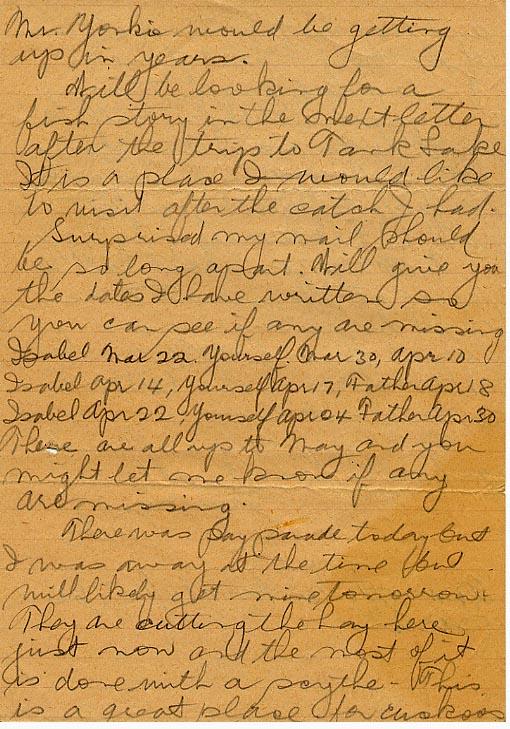 Mr. Yorkie would be getting
up in years.
Will be looking for a
fish story in the next letter
after the trip to Tank Lake
It is a place I would like
to visit after the catch I had.
Surprised my mail should
be so long apart. Will give you
the dates I have written so
you can see if any are missing
Isabel Mar 22. Yourself Mar 30, Apr 10
Isabel Apr 14, Yourself Apr 17, Father Apr 18
Isabel Apr 22, Yourself Apr 24 Father Apr 30
These are all up to May and you
might let me know if any
are missing.
There was pay parade today but
I was away at the time but
will likely get mine tomorrow.
They are cutting the hay here
just now and the most of it
is done with a scythe - This
is a great place for cuckoos